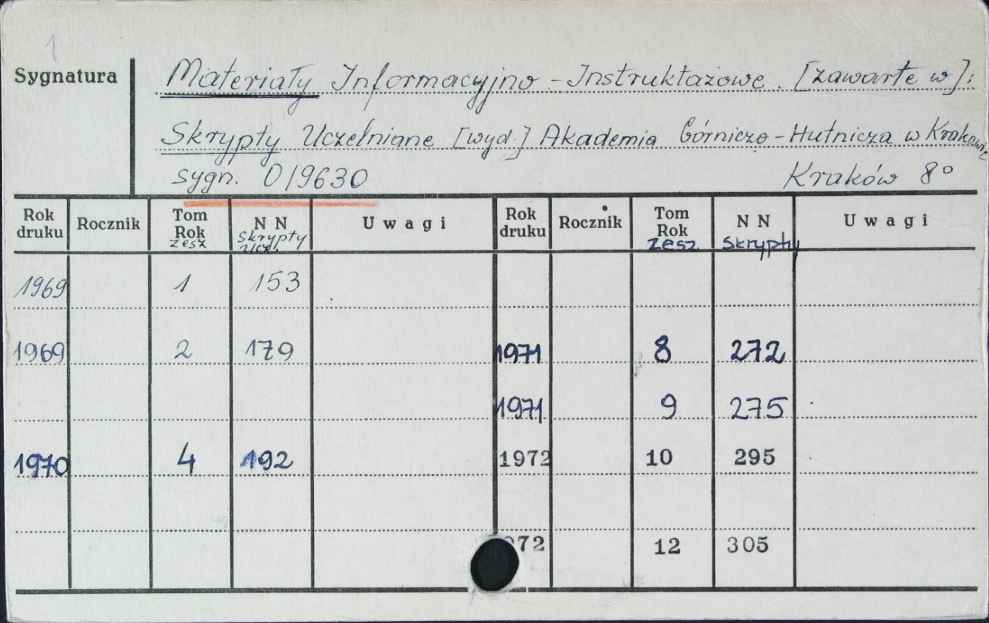 1
Sygnatura
Materiały Informacyjno-Instruktażowe. [zawarte w]:
Skrypty Uczelniane [wyd.] Akademia Górniczo-Hutnicza w Krakowie
sygn. 0/9630 Kraków 8°
Rok druku Rocznik Tom Rok zesz N N Skrypty Ucz. Uwagi Rok druku Rocznik Tom Rok zesz N N Skrypty Uwagi
1969 1 153
1969 2 179 1971 8 272
1971 9 275
1970 4 192 1972 10 295
972 12 305